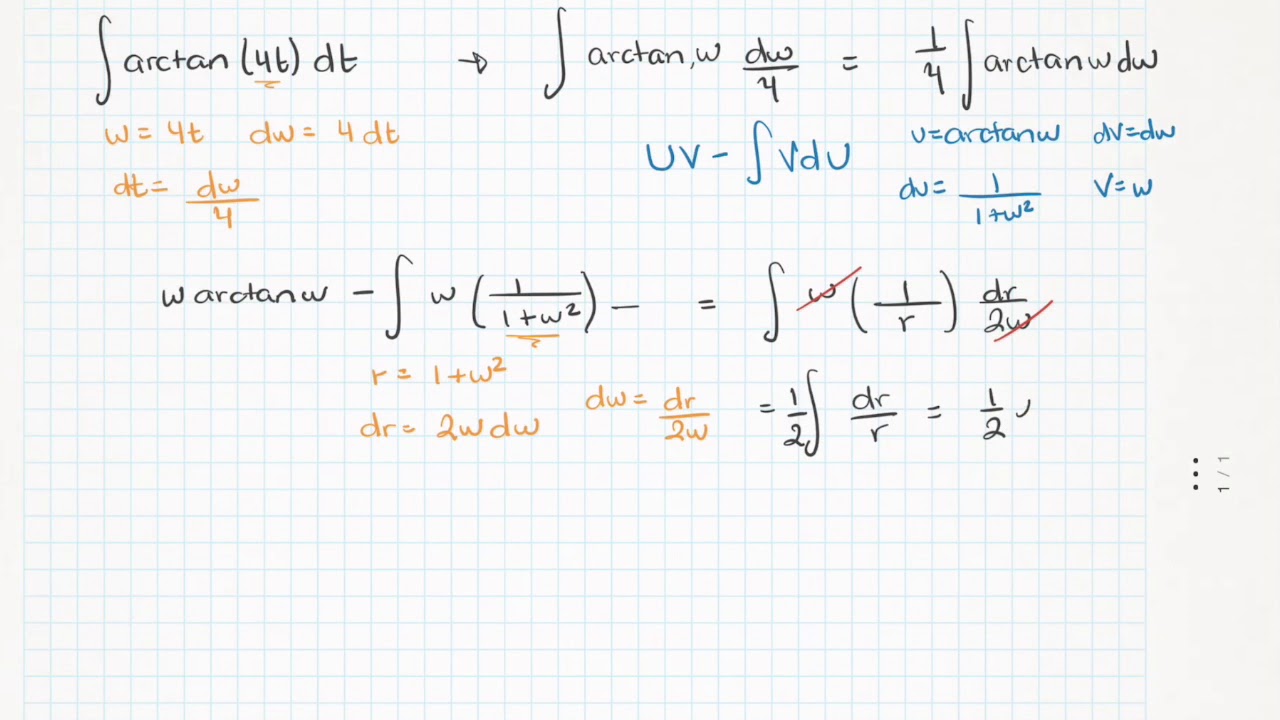 ∫ arctan (4t) dt → ∫ arctan w dw/4 = 1/4 ∫ arctan w dw
w = 4t dw = 4 dt
dt = dw/4
UV - ∫ V dU
u = arctan w dv = dw
du = 1/(1+w²) V = w
w arctan w - ∫ w (1/(1+w²)) — = ∫ w (1/r) dr/2w
r = 1+w²
dr = 2w dw dw = dr/2w
= 1/2 ∫ dr/r = 1/2
1 / 1